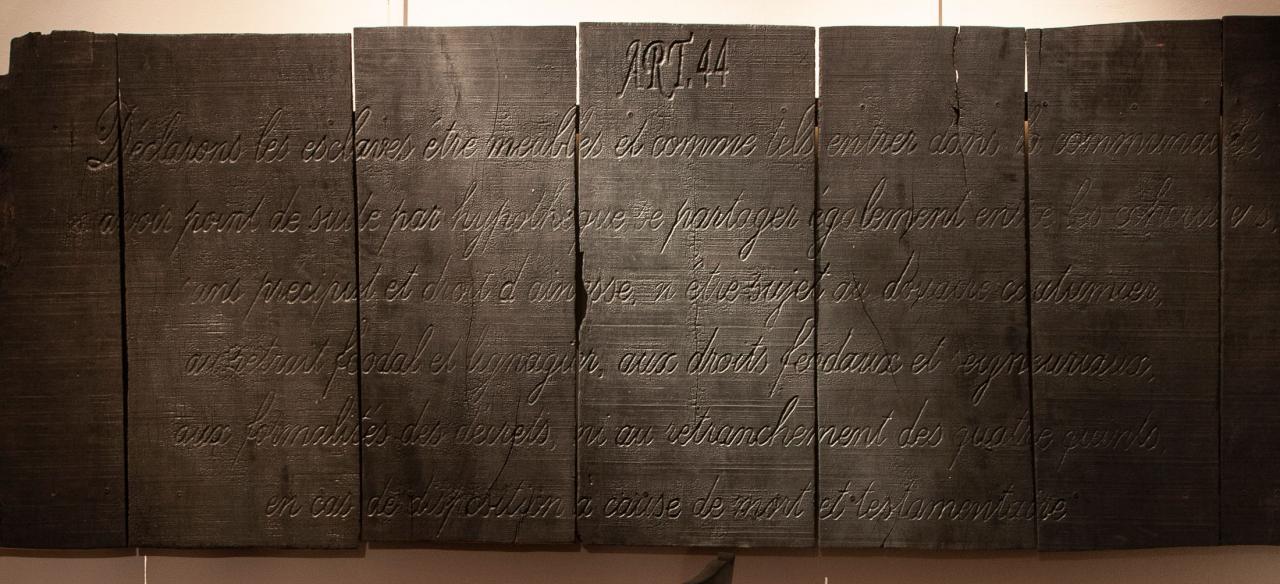 ART. 44
Déclarons les esclaves être meubles et comme tels entrer dans la communauté,
avoir point de suite par hypothèque se partager également entre les cohéritiers,
sans preciput et droit d'ainesse, ni être sujet au douaire coutumier,
au retrait féodal et lignager, aux droits feodaux et seigneuriaux,
aux formalités des decrets, ni au retranchement des quatre quints,
en cas de disposition a cause de mort et testamentaire